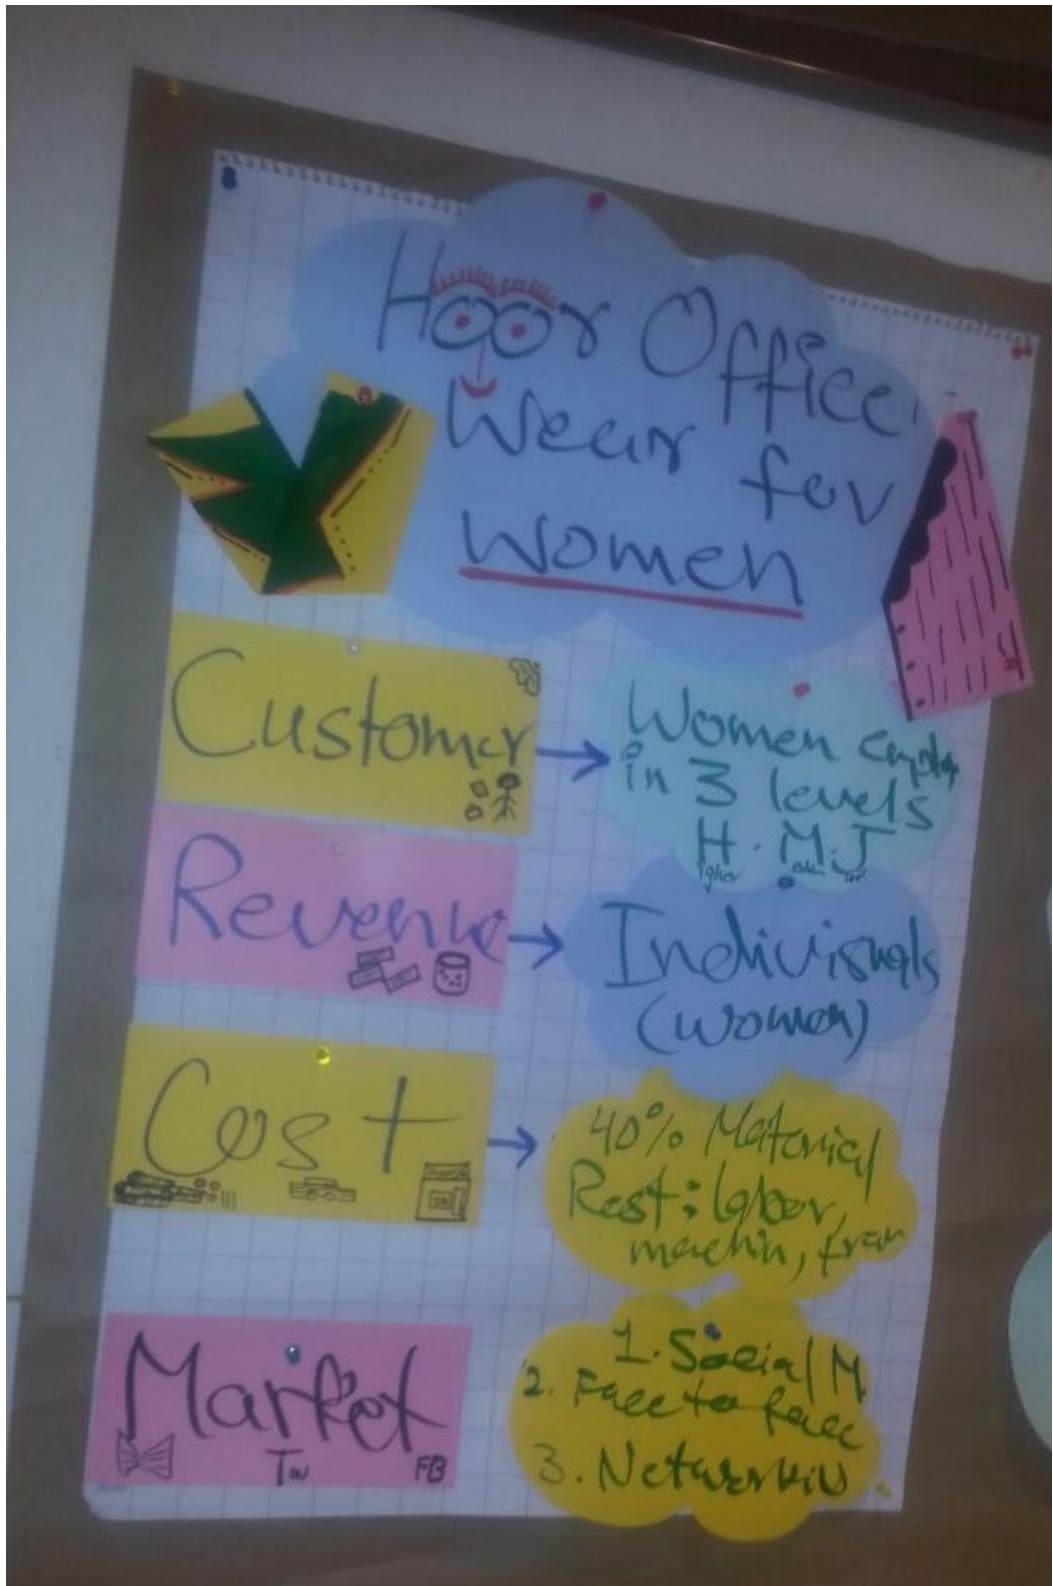 Hoor Office
Wear for
women
Customer
Women
in 3 levels
H. M. J
Revenue
Indivisuals
(women)
Cost
40% Material
Rest: labor,
machin,
Market
Tw
FB
1. Social M.
2. Face to face
3. Networking